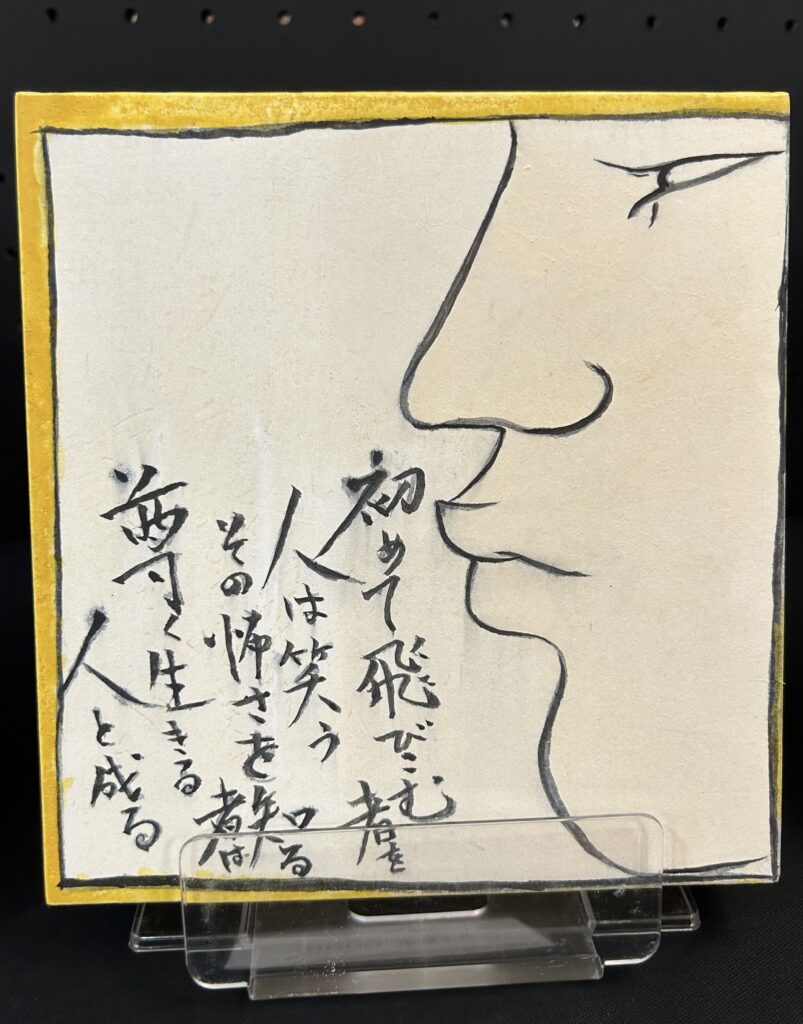 初めて飛びこむ者を
人は笑う
その怖さを知る者は
尊く生きる
人と成る